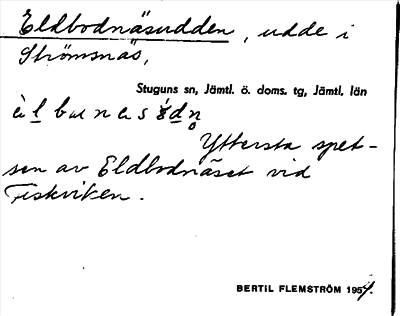 Eldbodnäsudden, udde i
Strömsnäs,
Stuguns sn, Jämtl. ö. doms. tg, Jämtl. län
Yttersta spet-
sen av Eldbodnäset vid
Fiskviken.
BERTIL FLEMSTRÖM 1954.